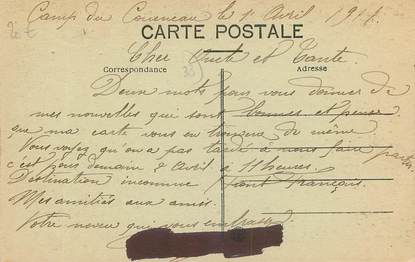 2€ Camp du Courneau le 1 Avril 1917.
CARTE POSTALE
Cher Oncle et Tante.
Correspondance Adresse
35
Deux mots pour vous donner de
mes nouvelles qui sont bonnes et pense
que ma carte vous en trouvera de même.
Vous voyez qu'on a pas tardé à nous faire partir
c'est pour demain 2 Avril à 11 heures.
Destination inconnue front français.
Mes amitiés aux amis.
Votre neveu qui vous embrasse